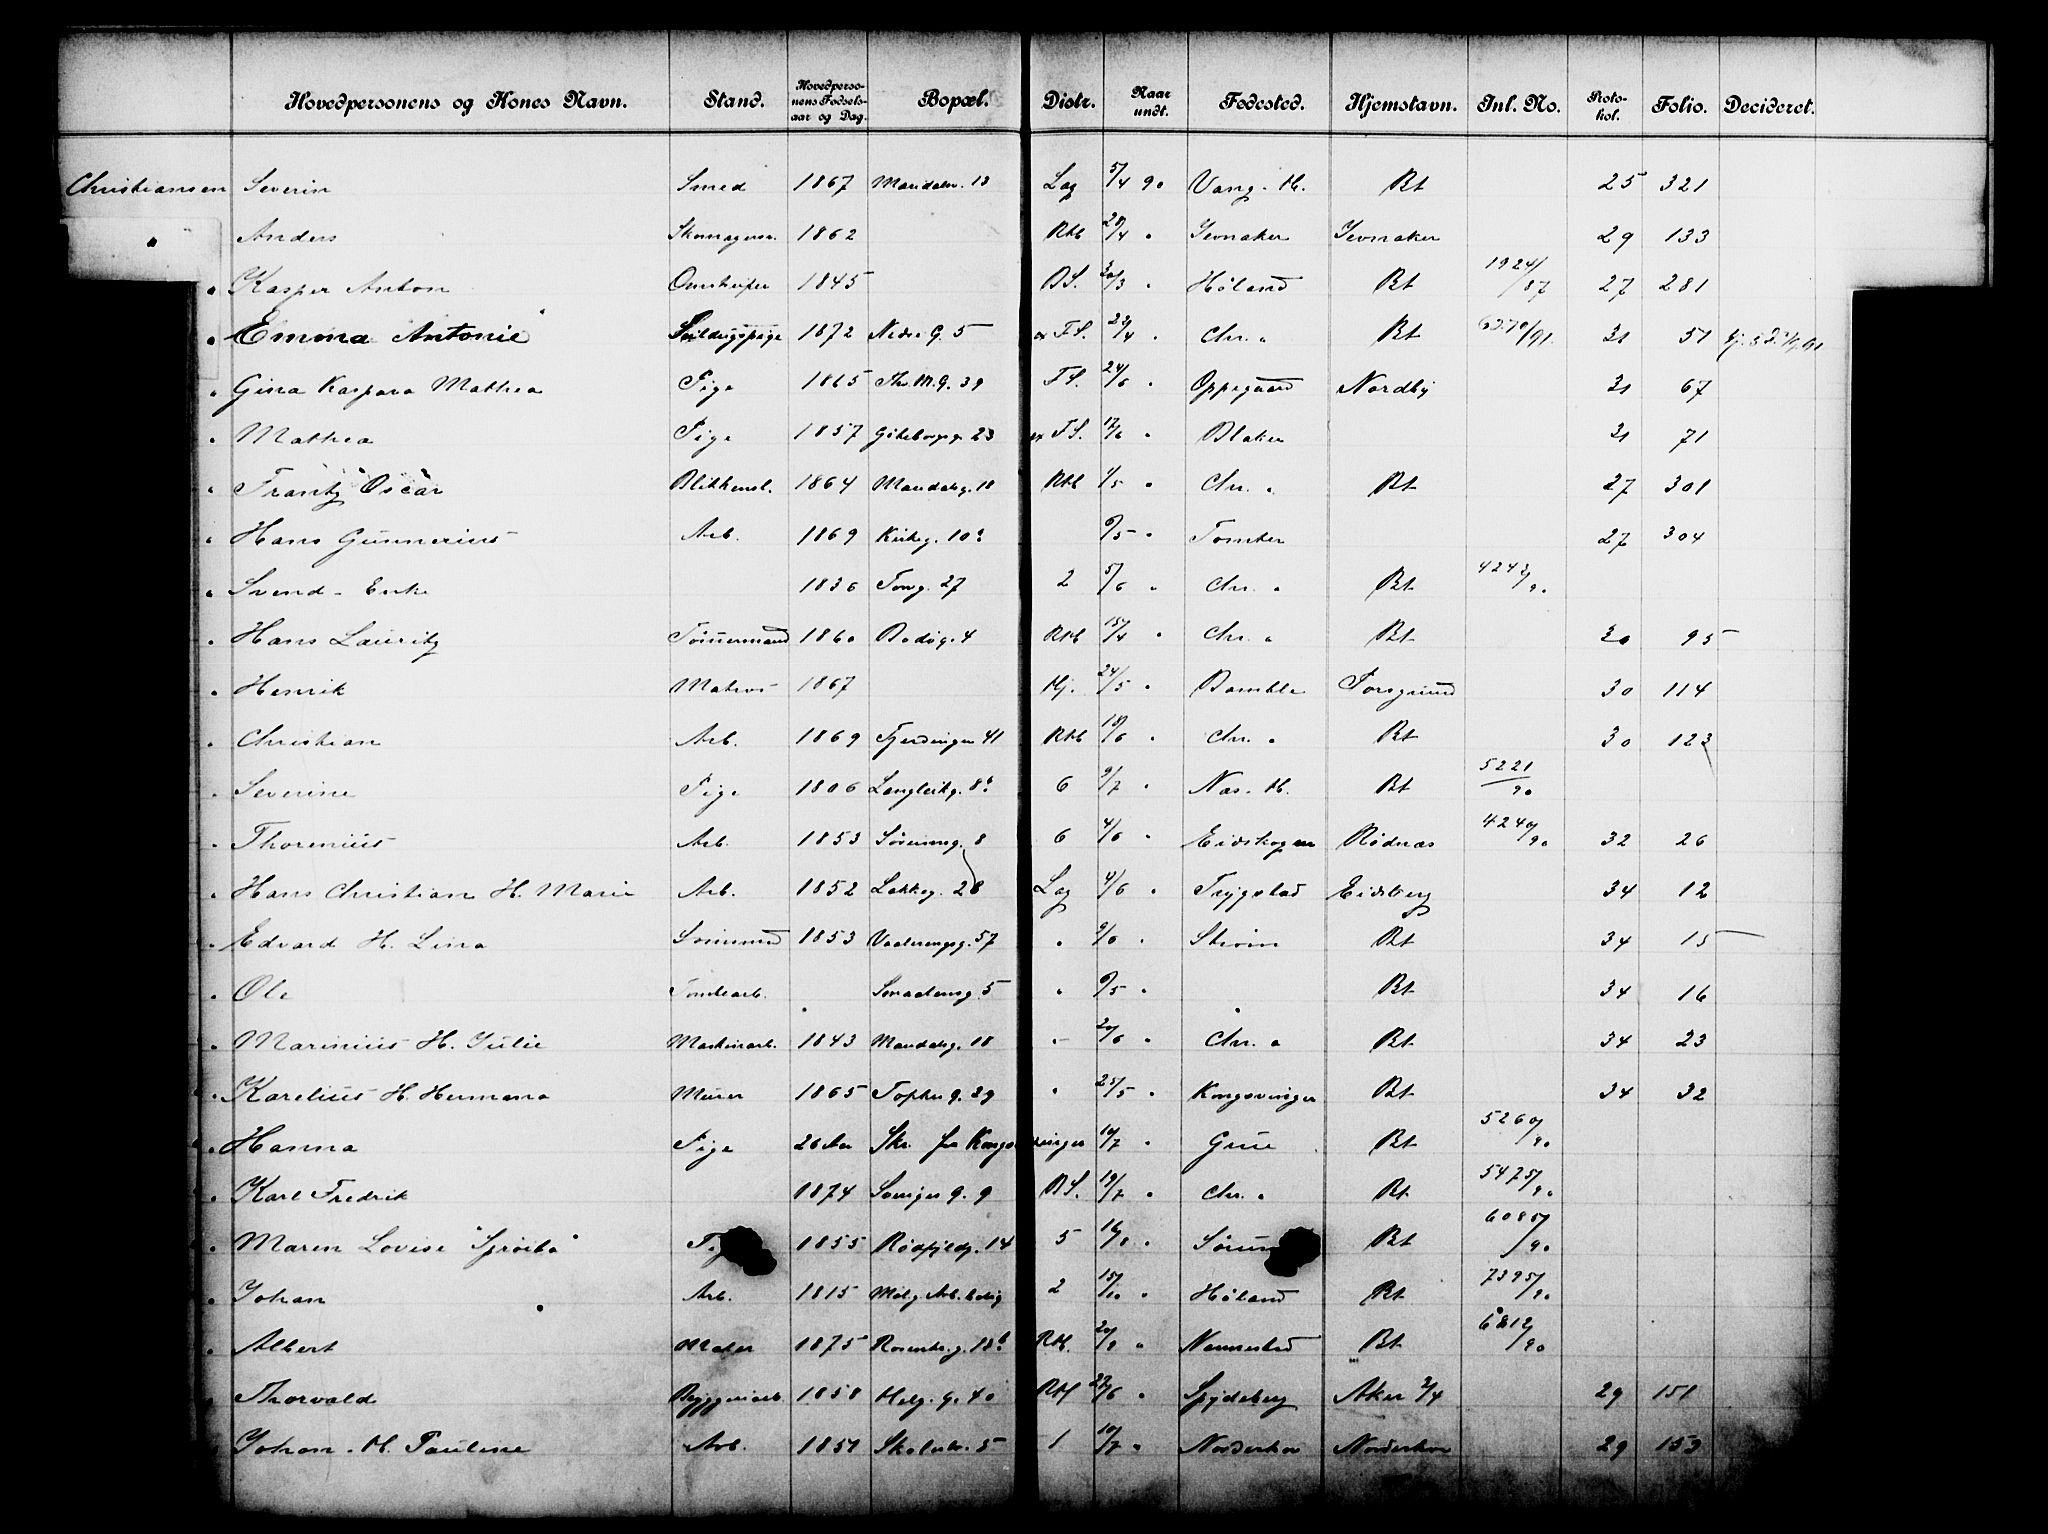 Hovedpersonens og Kones Navn. Stand. Hovedpersonens Fødselsaar og Dag. Bopæl. Distr. Naar undt. Fødested. Hjemstavn. Inl. No. Protokol. Folio. Decideret.
Christiansen Severin Smed 1867 Maridalsv. 13 Lag 5/4 90 Vang. H. Bt 25 321
" Anders Skomagersv. 1862 Rkb 28/4 " Jevnaker Jevnaker 29 133
" Kasper Anton 1845 BS. 20/3 " Høland Bt 1924/87 27 281
" Emma Antonie 1872 Nedre G. 5 FS. 23/4 " Chr. a Bt 31 51
" Gina Kaspara Mathea Pige 1865 Th. M. g. 39 FS. 24/6 " Oppegaard Nordby 31 67
" Mathea Pige 1857 Göteborgg. 23 FS. 17/6 " Blaker 31 71
" Frantz Oscar Blikkensl. 1864 Mandalsg. 18 Rkb 1/5 " Chr. a Bt 27 301
" Hans Gunnerius Arb. 1869 Kirkeg. 10 6/5 " Tomter 27 304
" Svend - Enke 1836 Torvg. 27 2 5/6 " Chr. a Bt 4242/90
" Hans Lauritz Tømmermand 1860 Bodøg. 4 Rkb 15/4 " Chr. a Bt 30 95
" Henrik Matros 1867 Hj. 24/5 " Bamble Porsgrund 30 114
" Christian Arb. 1869 Fjerdingen 41 Rkb 18/6 " Chr. a Bt 30 123
" Severine Pige 1806 Langleikg. 8b 6 9/7 " Næs. H. Bt 5221/90
" Thorenius Arb. 1853 8 6 4/6 " Eidskogen Rødnæs 4240/90 32 26
" Hans Christian H. Marie Arb. 1852 Lakkeg. 28 Lag 4/6 " Trygstad Eidsberg 34 12
" Edvard H. Lina Sømand 1853 Vaalerengsg. 57 " 6/6 " Strøm Bt 34 15
" Ole Tomtearb. Smaalensg. 5 " 6/5 " Bt 34 16
" Marinius H. Julie Maskinarb. 1843 Mandalsg. 18 " 20/6 " Chr. a Bt 34 23
" Karelius H. Hermana Murer 1865 Toftes g. 39 " 25/5 " Kongsvinger Bt 34 32
" Hanna Pige 26 Aar Skr. fra Kongsvinger 10/7 " Grue Bt 5260/90
" Karl Fredrik 1874 Sveriges g. 9 BS. 19/7 " Chr. a Bt 5475/90
" Maren Lovise 1855 Rødfyldg. 14 5 16/8 " Sørum Bt 6085/90
" Johan Arb. 1815 Møllg. Arb. bolig 2 15/10 " Høland Bt 7395/90
" Albert Maler 1875 Rosenkr. g. 13b Rkb. 20/9 " Nannestad Bt 6812/90
" Thorvald Bryggeriarb. 1858 Helg. G. 40 Rkb 27/6 " Spydeberg Aker 2/4 29 151
Johan. H. Pauline Arb. 1851 Skolestr. 5 1 10/7 " Norderhov Norderhov 29 153